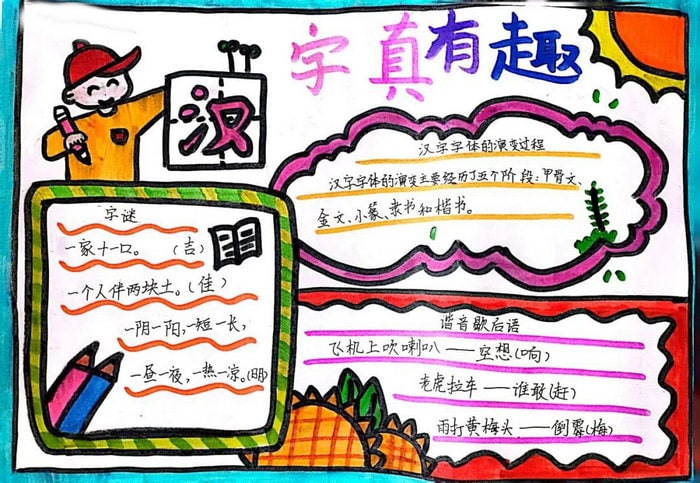 汉字真有趣
汉字字体的演变过程
汉字字体的演变主要经历了五个阶段：甲骨文、
金文、小篆、隶书和楷书。
字谜
一家十一口。（吉）
一个人伴两块土。（佳）
一阴一阳，一短一长，
一昼一夜，一热一凉。（明）
谐音歇后语
飞机上吹喇叭——空想（响）
老虎拉车——谁敢（赶）
雨打黄梅头——倒霉（梅）